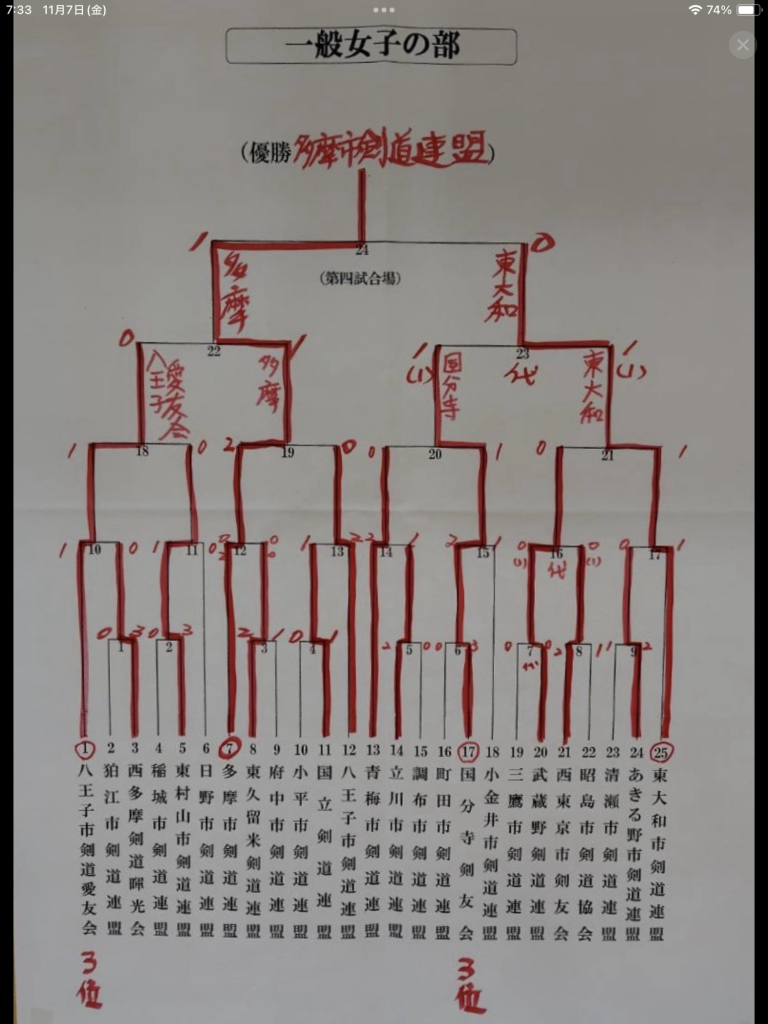 7:33 11月7日(金)
74%
一般女子の部
(優勝 多摩市剣道連盟)
1 24 0
(第四試合場)
多摩
東大和
0 22 1
1 23 1
(1) 代 (1)
八王子愛友会
多摩
国分寺
東大和
1 18 0
2 19 0
0 20 1
0 21 1
1 10 0
1 11
12
1 13 2
2 14 1
2 15
0 16 0
(1) 代 (1)
0 17 1
0 1 3
0 2 3
2 3 1
0 4 1
2 5 0
0 6 3
0 7 0
代
2 8 1
1 9 2
1 八王子市剣道愛友会
2 狛江市剣道連盟
3 西多摩剣道暉光会
4 稲城市剣道連盟
5 東村山市剣道連盟
6 日野市剣道連盟
7 多摩市剣道連盟
8 東久留米剣道連盟
9 府中市剣道連盟
10 小平市剣道連盟
11 国立剣道連盟
12 八王子市剣道連盟
13 青梅市剣道連盟
14 立川市剣道連盟
15 調布市剣道連盟
16 町田市剣道連盟
17 国分寺剣友会
18 小金井市剣道連盟
19 三鷹市剣道連盟
20 武蔵野剣道連盟
21 西東京市剣友会
22 昭島市剣道協会
23 清瀬市剣道連盟
24 あきる野市剣道連盟
25 東大和市剣道連盟
3位
3位